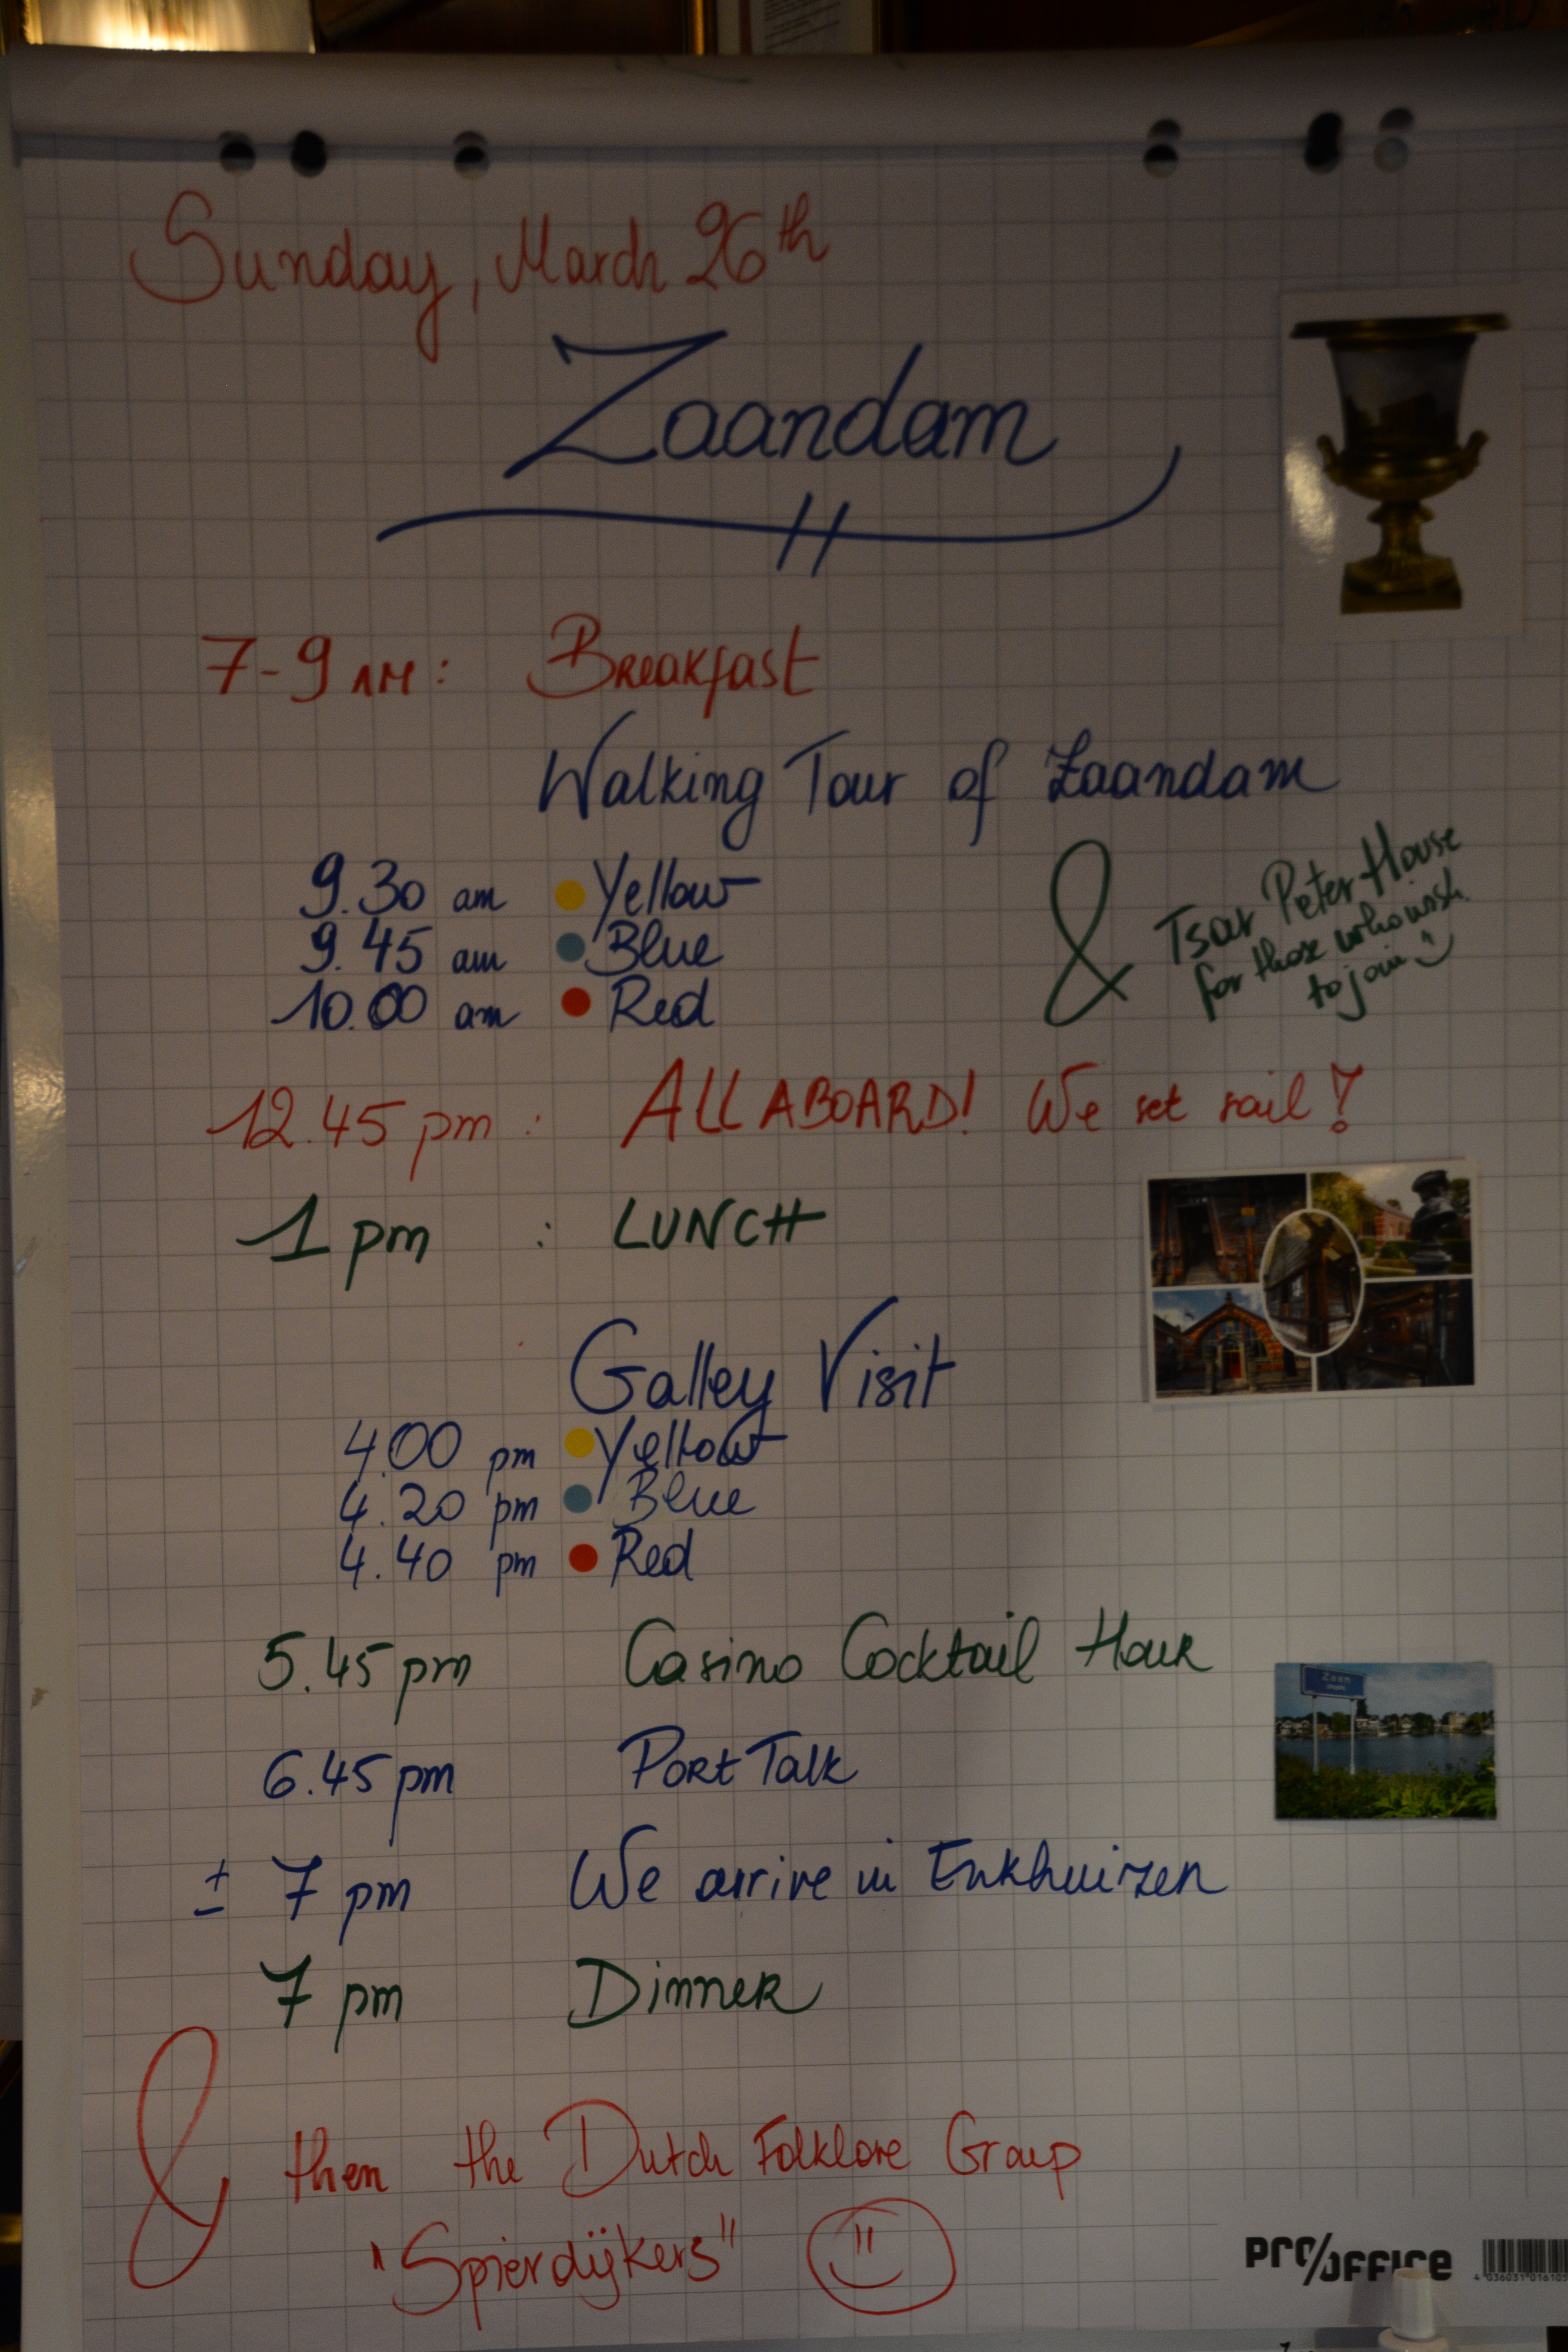 Sunday, March 26th
Zaandam
7-9 AM: Breakfast
Walking Tour of Zaandam
9.30 am Yellow
9.45 am Blue
10.00 am Red
& Tsar Peter House
for those who wish
to join
12.45 pm : ALL ABOARD! We set sail!
1 pm : LUNCH
Galley Visit
4.00 pm Yellow
4.20 pm Blue
4.40 pm Red
5.45 pm Casino Cocktail Hour
6.45 pm Port Talk
± 7 pm We arrive in Enkhuizen
7 pm Dinner
& then the Dutch Folklore Group
"Spierdijkers"
PRO/OFFICE